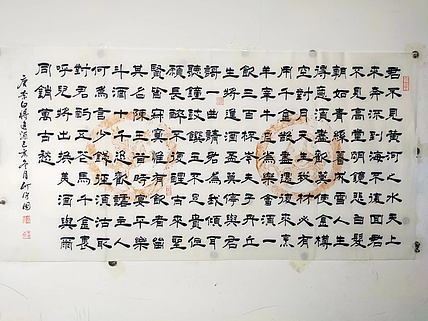 君不見黃河之水天上
來奔流到海不復回君
不見高堂明鏡悲白髮
朝如青絲暮成雪人生
得意須盡歡莫使金樽
空對月天生我材必有
用千金散盡還復來烹
羊宰牛且為樂會須一
飲三百杯岑夫子丹丘
生將進酒杯莫停與君
謌一曲請君為我傾耳
聽鐘鼓饌玉不足貴但
願長醉不復醒古來聖
賢皆寂寞惟有飲者留
其名陳王昔時宴平樂
斗酒十千恣歡謔主人
何為言少錢徑須沽取
對君酌五花馬千金裘
呼兒將出換美酒與爾
同銷萬古愁
唐李白將進酒己亥年月